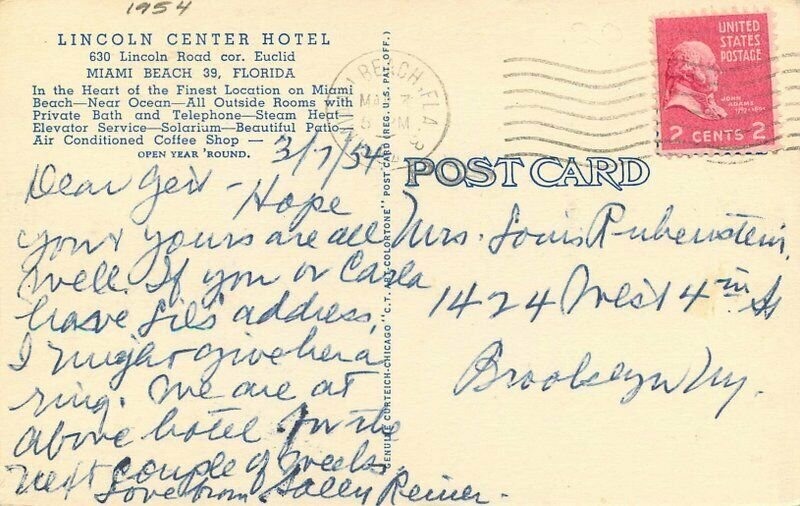 1954
LINCOLN CENTER HOTEL
630 Lincoln Road cor. Euclid
MIAMI BEACH 39, FLORIDA
In the Heart of the Finest Location on Miami
Beach—Near Ocean—All Outside Rooms with
Private Bath and Telephone—Steam Heat
Elevator Service—Solarium—Beautiful Patio
Air Conditioned Coffee Shop —
OPEN YEAR 'ROUND.
3/7/54
Dear Gert - Hope
you & yours are all
well. If you or Carla
have Lil's address,
I might give her a
ring. We are at
above hotel for the
next couple of weeks.
Love from Sally Reiner.
GENUINE CURTEICH-CHICAGO "C. T. ART-COLORTONE" POST CARD (REG. U.S. PAT. OFF.)
BEACH, FLA.
MAR 7
PM
UNITED
STATES
POSTAGE
JOHN
ADAMS
1797-1801
2 CENTS 2
POST CARD
Mrs. Louis Rubenstein,
1424 West 4th St
Brooklyn NY.